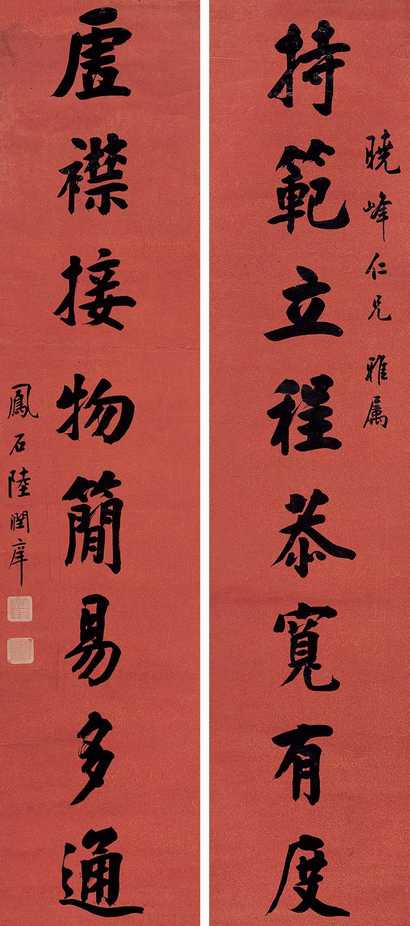 曉峰仁兄 雅属
持範立程恭寬有度
虛襟接物簡易多通
鳳石陸潤庠